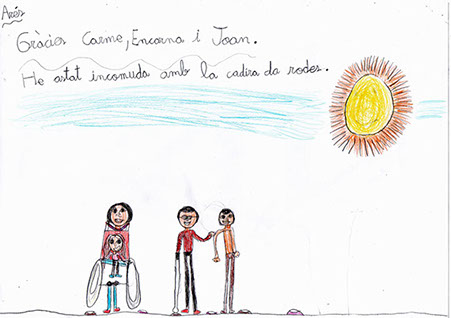 Arés
Gràcies Carme, Encarna i Joan.
He astat incomuda amb la cadira da rodes.